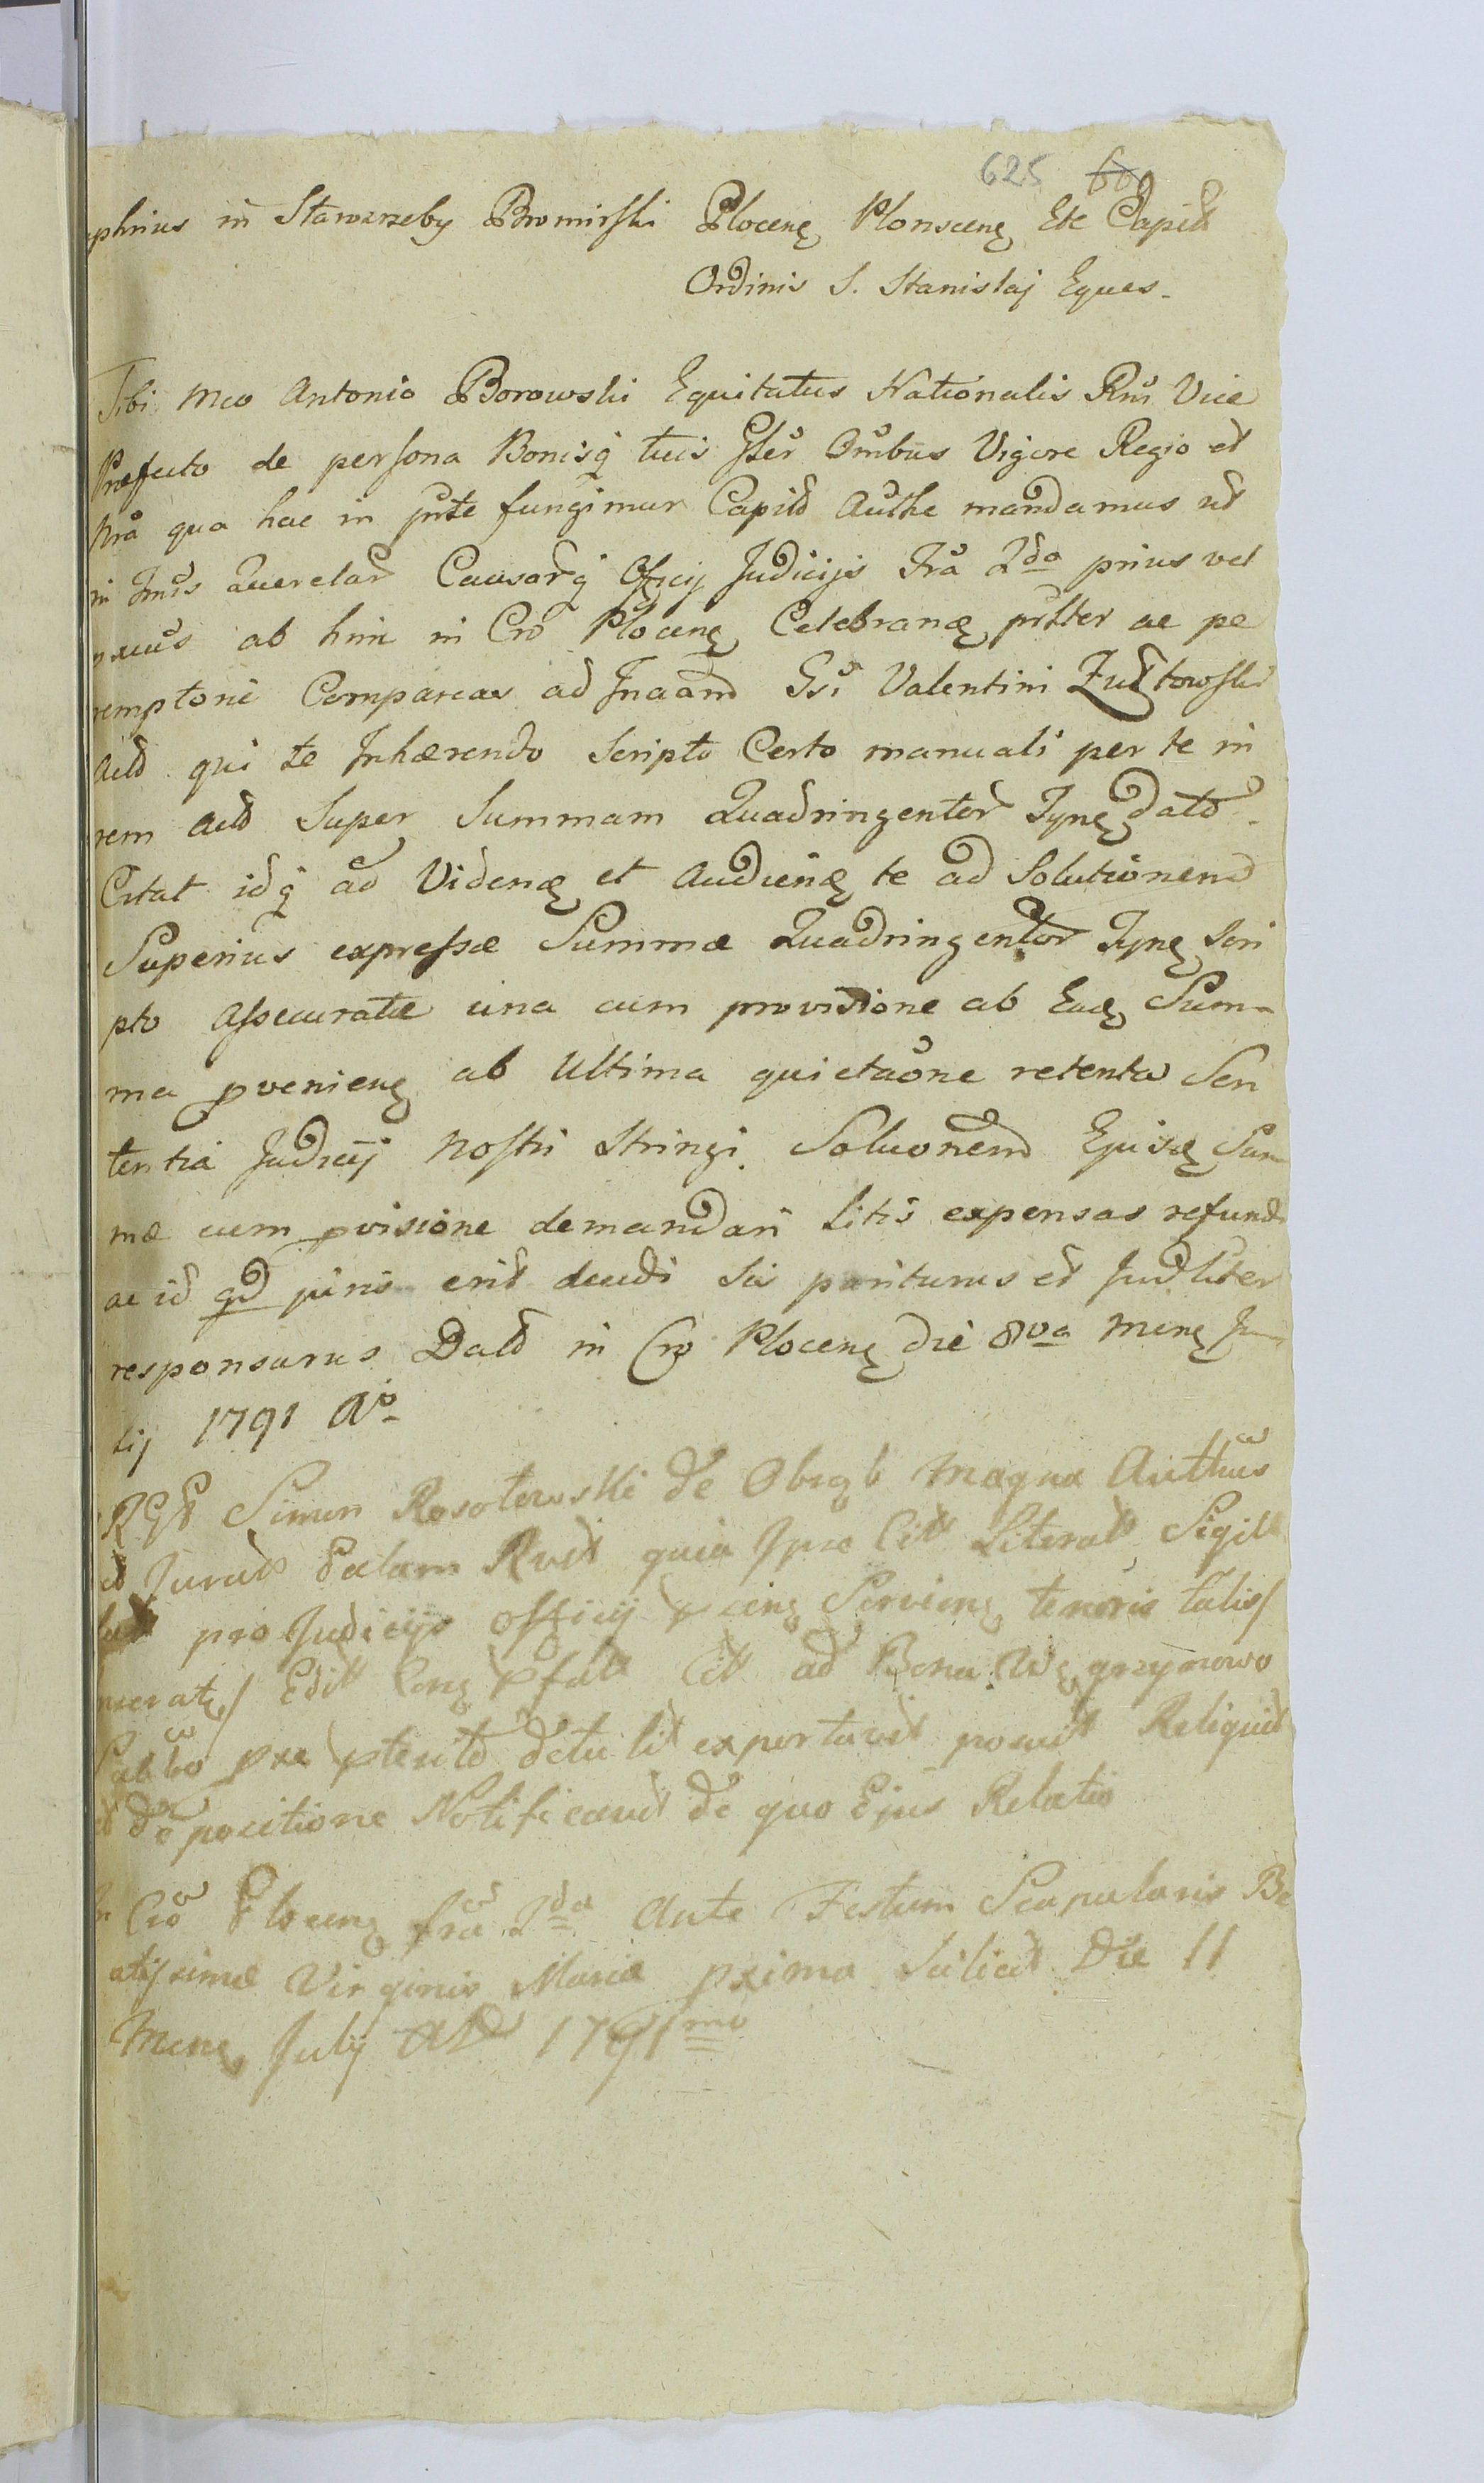 625
phrius in Stawarzeby Bromirski Plocenę Plonscenę Etc Capit
Ordinis S. Stanislaj Eques.
Tibi Mco Antonio Borowski Equitatus Nationalis Rni Vice
Præfecto de persona Bonisq tuis gster Omibus Vigore Regio et
Nra qua hac in pnte fungimur Capit Authe mandamus ut
in Jmis Querelar Causarq Officij Judicijs Fra 2da prius vel
ab hinc in Cro Plocenę Celebranę pntter ac pe
remptorie Compareas ad Jnaam Gsi Valentini
Act qui te Inhærendo Scripto Certo manuali per te in
rem Act Super Summam Quadringentor Tynę dato
Citat idq ad Videnę et Audienę te ad Solutionem
Superius expressæ Summæ Quadringentor Tynę Scri
pto Assecuratæ una cum provisione ab Eadę Sum-
ma pvenienę ab Ultima quietaone retenta Sen
tentia Judicij Nostri Stringi Soluonem Ejusdę Sum
mæ cum pvisione demandari Litis expensas refundi
ac id qd juris erit decidi Sis pariturus et Judliter
responsurus Dat in Cro Plocenę die 8va Menę Ju
lij 1791 Ao
RGst Simon Rosolowski de Obręb Magna Authus
et Jurat palam Rvit quia Ipse Citt Literat Sigill
lat pro Judicijs officij Servienę tenoris talis/
Edit Conę Pfat Citt ad Bona Węgrzynowo
Sabbo pxe pterito detulit exportavit posuit Reliquit
et de positione Notificavit de quo Ejus Relatio
In Cro Plocenę fra 2da Ante Festum Scapularis Be
atissimæ Virginis Mariæ pxima Scilicet Die 11
Menę July AD 1791mo